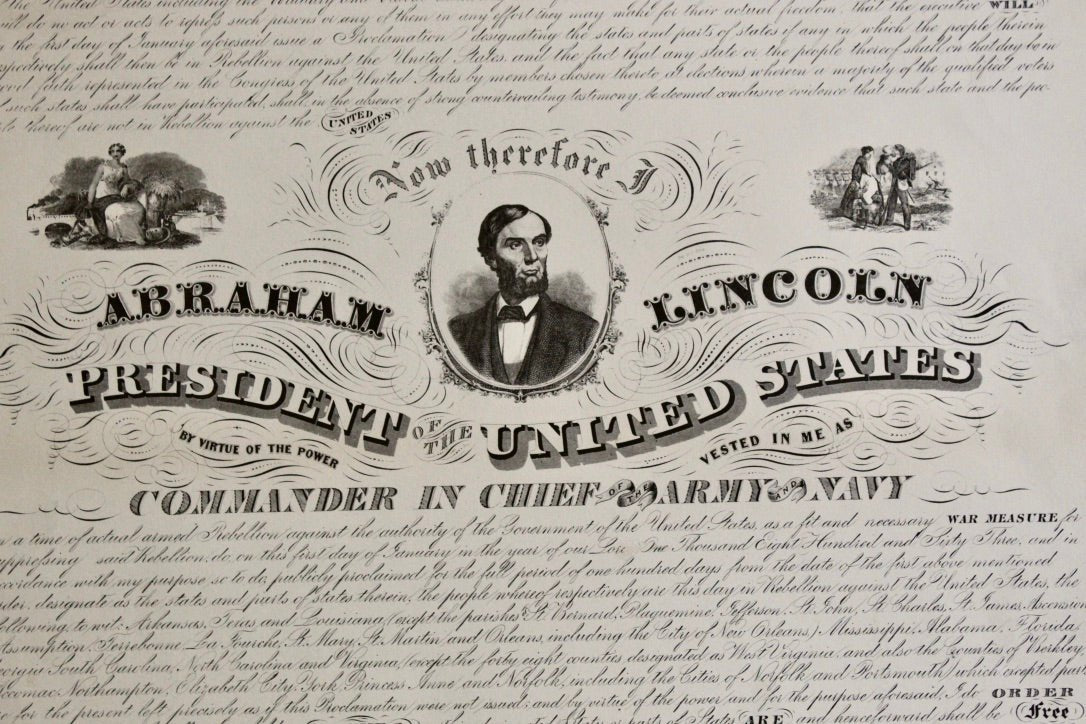 the United States including the Military and Naval
will do no act or acts to repress such persons or any of them in any effort they may make for their actual freedom; that the executive WILL
the first day of January aforesaid issue a Proclamation designating the states and parts of states if any in which the people therein
respectively shall then be in Rebellion against the United States, and the fact that any state or the people thereof shall on that day be in
good faith represented in the Congress of the United States by members chosen thereto at elections wherein a majority of the qualified voters
such states shall have participated, shall, in the absence of strong countervailing testimony, be deemed conclusive evidence that such state and the peo-
ple thereof are not in Rebellion against the UNITED STATES
Now therefore I
ABRAHAM LINCOLN
PRESIDENT OF THE UNITED STATES
BY VIRTUE OF THE POWER VESTED IN ME AS
COMMANDER IN CHIEF OF THE ARMY AND NAVY
in a time of actual armed Rebellion against the authority of the Government of the United States, as a fit and necessary WAR MEASURE for
suppressing said Rebellion, do, on this first day of January in the year of our Lord One Thousand Eight Hundred and Sixty Three, and in
accordance with my purpose so to do, publicly proclaimed for the full period of one hundred days from the date of the first above mentioned
order, designate as the states and parts of states therein, the people whereof respectively are this day in Rebellion against the United States, the
following, to wit: Arkansas, Texas, and Louisiana, (except the parishes St. Bernard, Plaquemine, Jefferson, St. John, St. Charles, St. James, Ascension
Assumption, Terrebonne, La Fourche, St. Mary, St. Martin and Orleans, including the City of New Orleans,) Mississippi, Alabama, Florida,
Georgia South Carolina, North Carolina and Virginia, (except the forty eight counties designated as West Virginia, and also the Counties of Berkley,
Accomac, Northampton, Elizabeth City, York, Princess Anne and Norfolk, including the Cities of Norfolk and Portsmouth) which excepted parts
for the present left precisely as if this Proclamation were not issued; and by virtue of the power and for the purpose aforesaid, I do ORDER
States or parts of States ARE and henceforward shall be Free